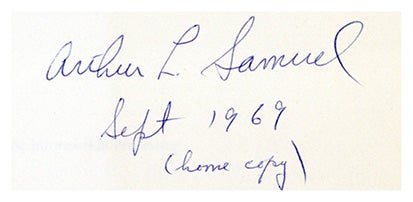 Arthur L. Samuel
Sept 1969
(home copy)